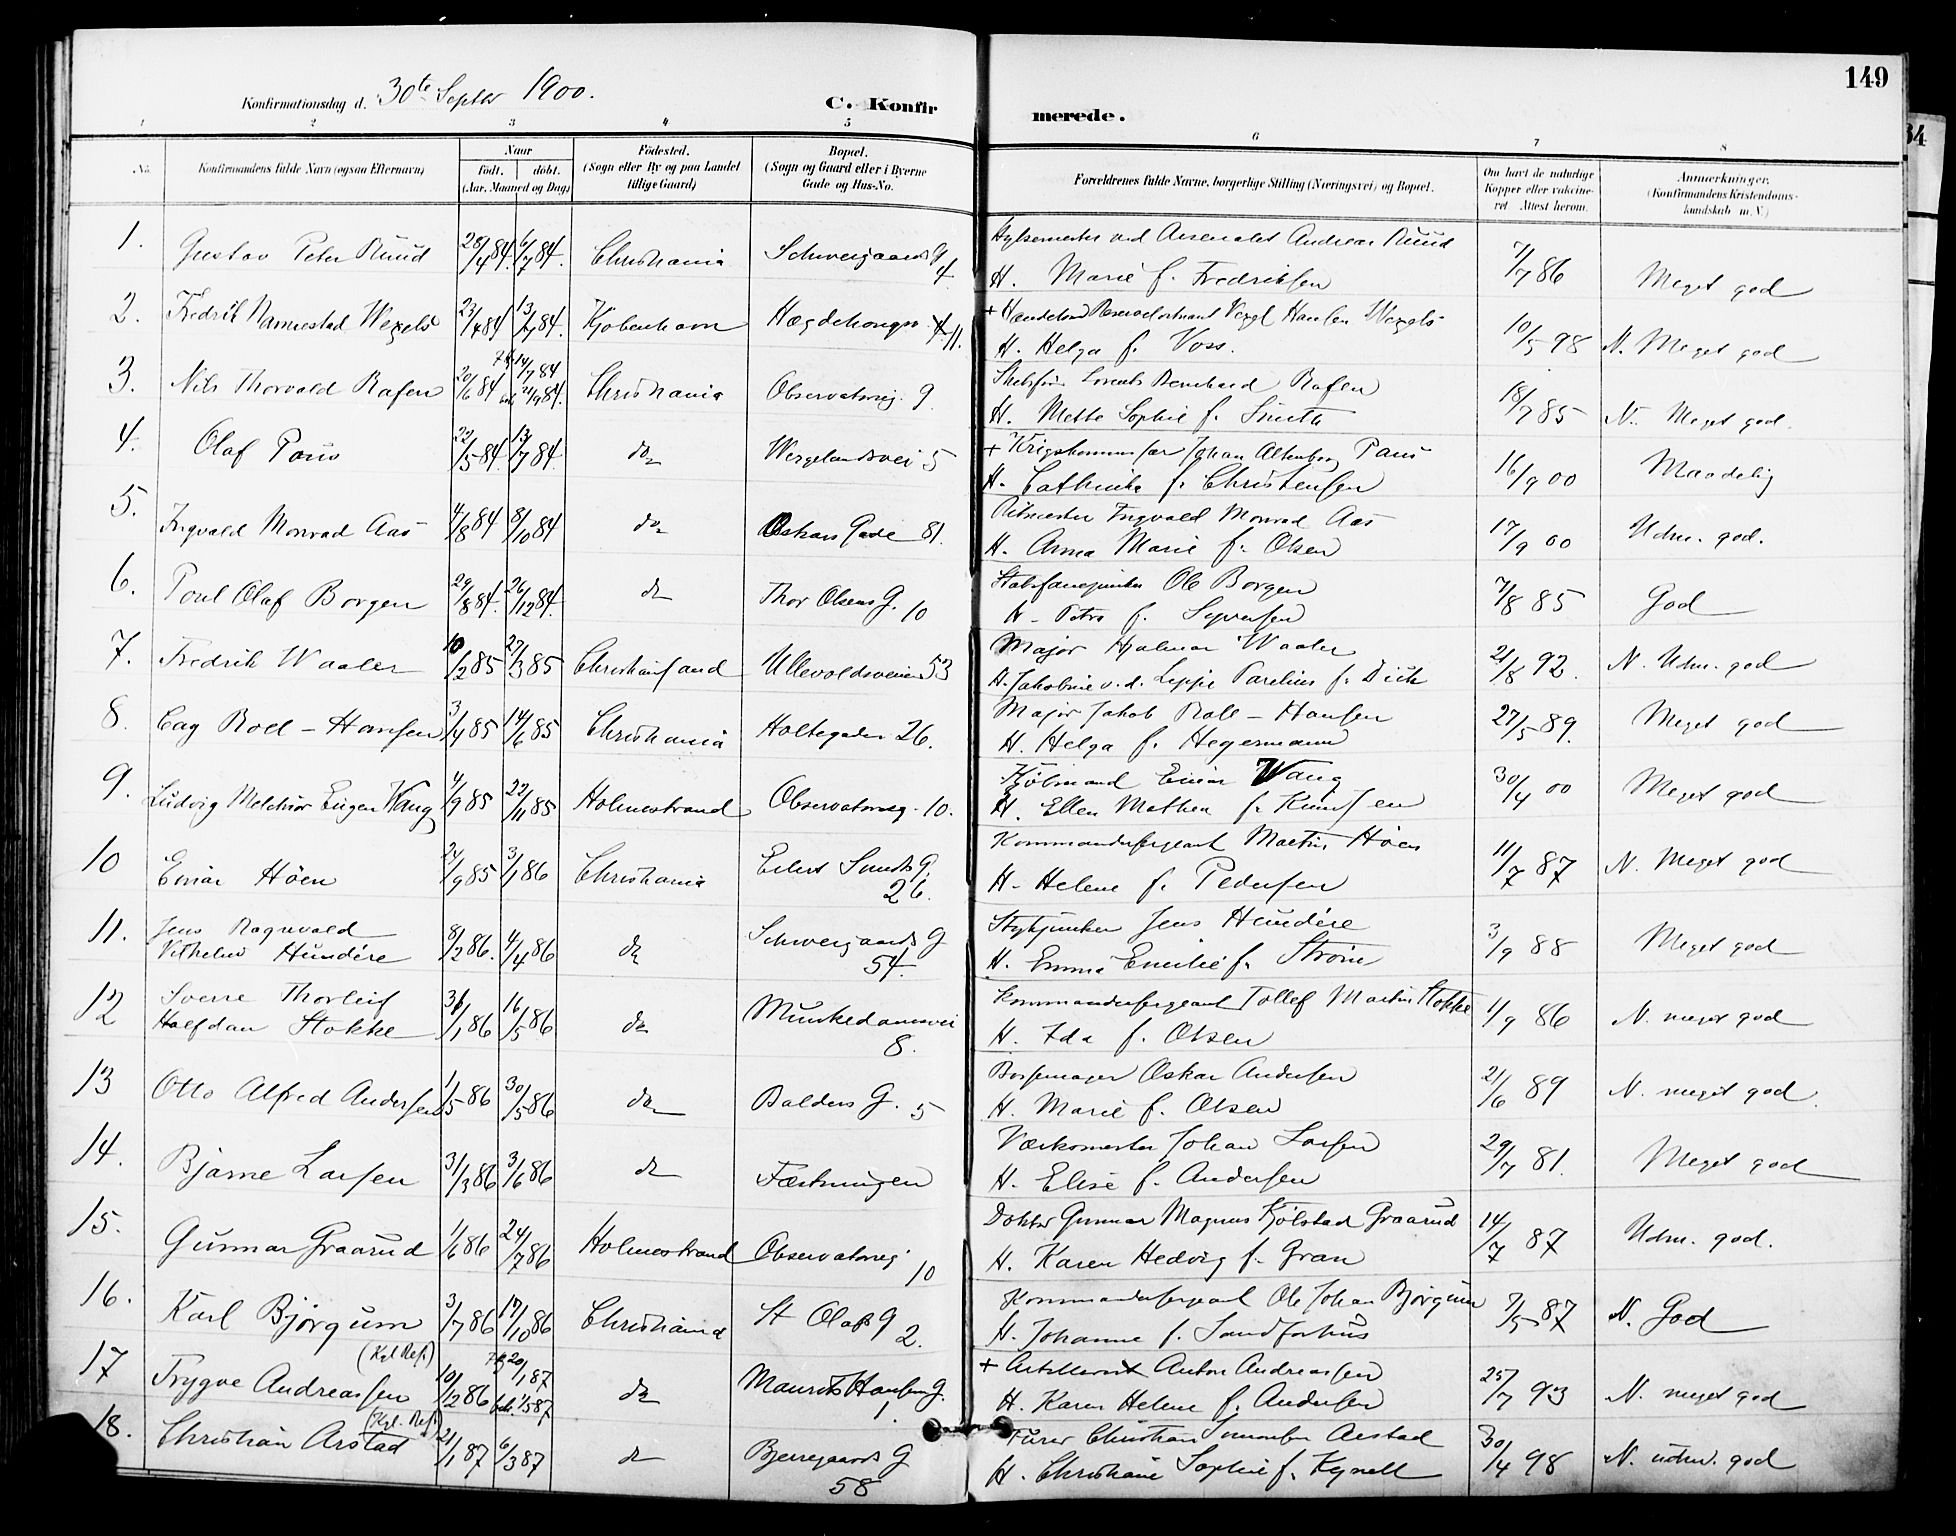 149
Konfirmationsdag d. 30te Septbr 1900.
C. Konfirmerede.
1 2 3 4 5 6 7 8
No.
Konfirmandens fulde Navn (ogsaa Efternavn)
Naar
født. døbt.
(Aar, Maaned og Dag)
Fødested.
(Sogn eller By og paa Landet
tillige Gaard)
Bopæl.
(Sogn og Gaard eller i Byerne
Gade og Hus-No.
Forældrenes fulde Navne, borgerlige Stilling (Næringsvei) og Bopæl.
Om havt de naturlige
Kopper eller vaccine-
ret. Attest herom.
Anmærkninger.
(Konfirmandens Kristendoms-
kundskab m. V.)
1. Gustav Peter Ruud 28/4 84. 6/7 84. Christiania Schweigaards G 4. Andreas Ruud
H. Marie f. Fredriksen 7/7 86 Meget god
2. Fredrik Wexels 23/4 84 13/7 84. Kjøbenhavn 11. Hansen Wexels
H. Helga f. Voss. 10/5 98 N. Meget god
3. Nils Thorvald Rafen 20/6 84 14/7 84 21/9 84. Christiania Observatorieg. 9. Lorents Bernhard Rafen
H. Mette Sophie f. Smith 18/7 85 N. Meget god.
4. Olaf Paus 22/5 84. 13/7 84. do Wergelandsvei 5 + Krigskommissær Johan Altenborg Paus
H. Cathinka f. Christensen 16/9 00 Maadelig
5. Ingvald Monrad Aas 4/8 84 8/10 84 do Oskars Gade 81. Ritmester Ingvald Monrad Aas
H. Anna Marie f. Olsen 17/9 00 Udm. god.
6. Poul Olaf Borgen 29/8 84. 26/12 84. do Thor Olsens G. 10 Stabsfanejunker Ole Borgen
H. Petra f. Syversen 7/8 85 God
7. Fredrik Waaler 10/2 85 27/3 85 Christiansand Ullevoldsveien 53 Major Hjalmar Waaler
H. Jakobine v. d. Lippe Parelius f. Dick 21/8 92. N. Udm. god
8. Cay Roll-Hansen 3/4 85 14/6 85 Christiania Holtegaden 26. Major Jakob Roll-Hansen
H. Helga f. Hegermann 27/5 89. Meget god
9. Ludvig Melchior Eugen Wang 4/9 85 22/11 85 Holmestrand Observatorieg. 10. Kjøbmand Einar Wang
H. Ellen Mathea f. Knudsen 30/4 00 Meget god
10 Einar Høen 24/9 85 3/1 86 Christiania Eilert Sundts G. 26. Kommandersergeant Martin Høen
H. Helene f. Pedersen 11/7 87 N. Meget god
11. Jens Ragnvald
Vilhelm Hundere 8/2 86. 4/4 86 do Schweigaards G 54. Stykjunker Jens Hundere
H. Emma Emilie f. Strøm 3/9 88 Meget god
12 Sverre Thorleif
Halfdan Stokke 31/1 86 16/5 86 do Munkedamsvei 8. Kommandersergeant Tollef Martin Stokke
H. Ida f. Olsen 1/9 86 N. meget god
13 Otto Alfred Andersen 1/5 86 30/5 86 do Balders G. 5 Børsemager Oskar Andersen
H. Marie f. Olsen 21/6 89 N. meget god.
14. Bjarne Larsen 3/3 86 3/6 86 do Fæstningen Værkmester Johan Larsen
H. Elise f. Andersen 29/7 81. Meget god
15. Gunnar Graarud 1/6 86 24/7 86 Holmestrand Observatorieg 10 Doktor Gunnar Magnus Kjølstad Graarud
H. Karen Hedvig f. Gran 14/7 87 Udm. god.
16. Karl Bjørgum 3/7 86 17/10 86 Christiania St Olafs G 2. Kommandersergeant Ole Johan Bjørgum
H. Johanne f. Sandforhus 7/5 87 N. God
17 Trygve Andreassen (Kgl. Res.) 10/12 86 20/1 87 1/5 87 do Maurits Hansens G. 1. + Anton Andreassen
H. Karen Helene f. Andersen 25/7 93 N. meget god
18. Christian Arstad (Kgl. Res.) 21/1 87 6/3 87 do Bjerregaards G 58 Furer Christian Simonsen Aarstad
H. Christiane Sophie f. Kynell 30/4 98 N. udm. god